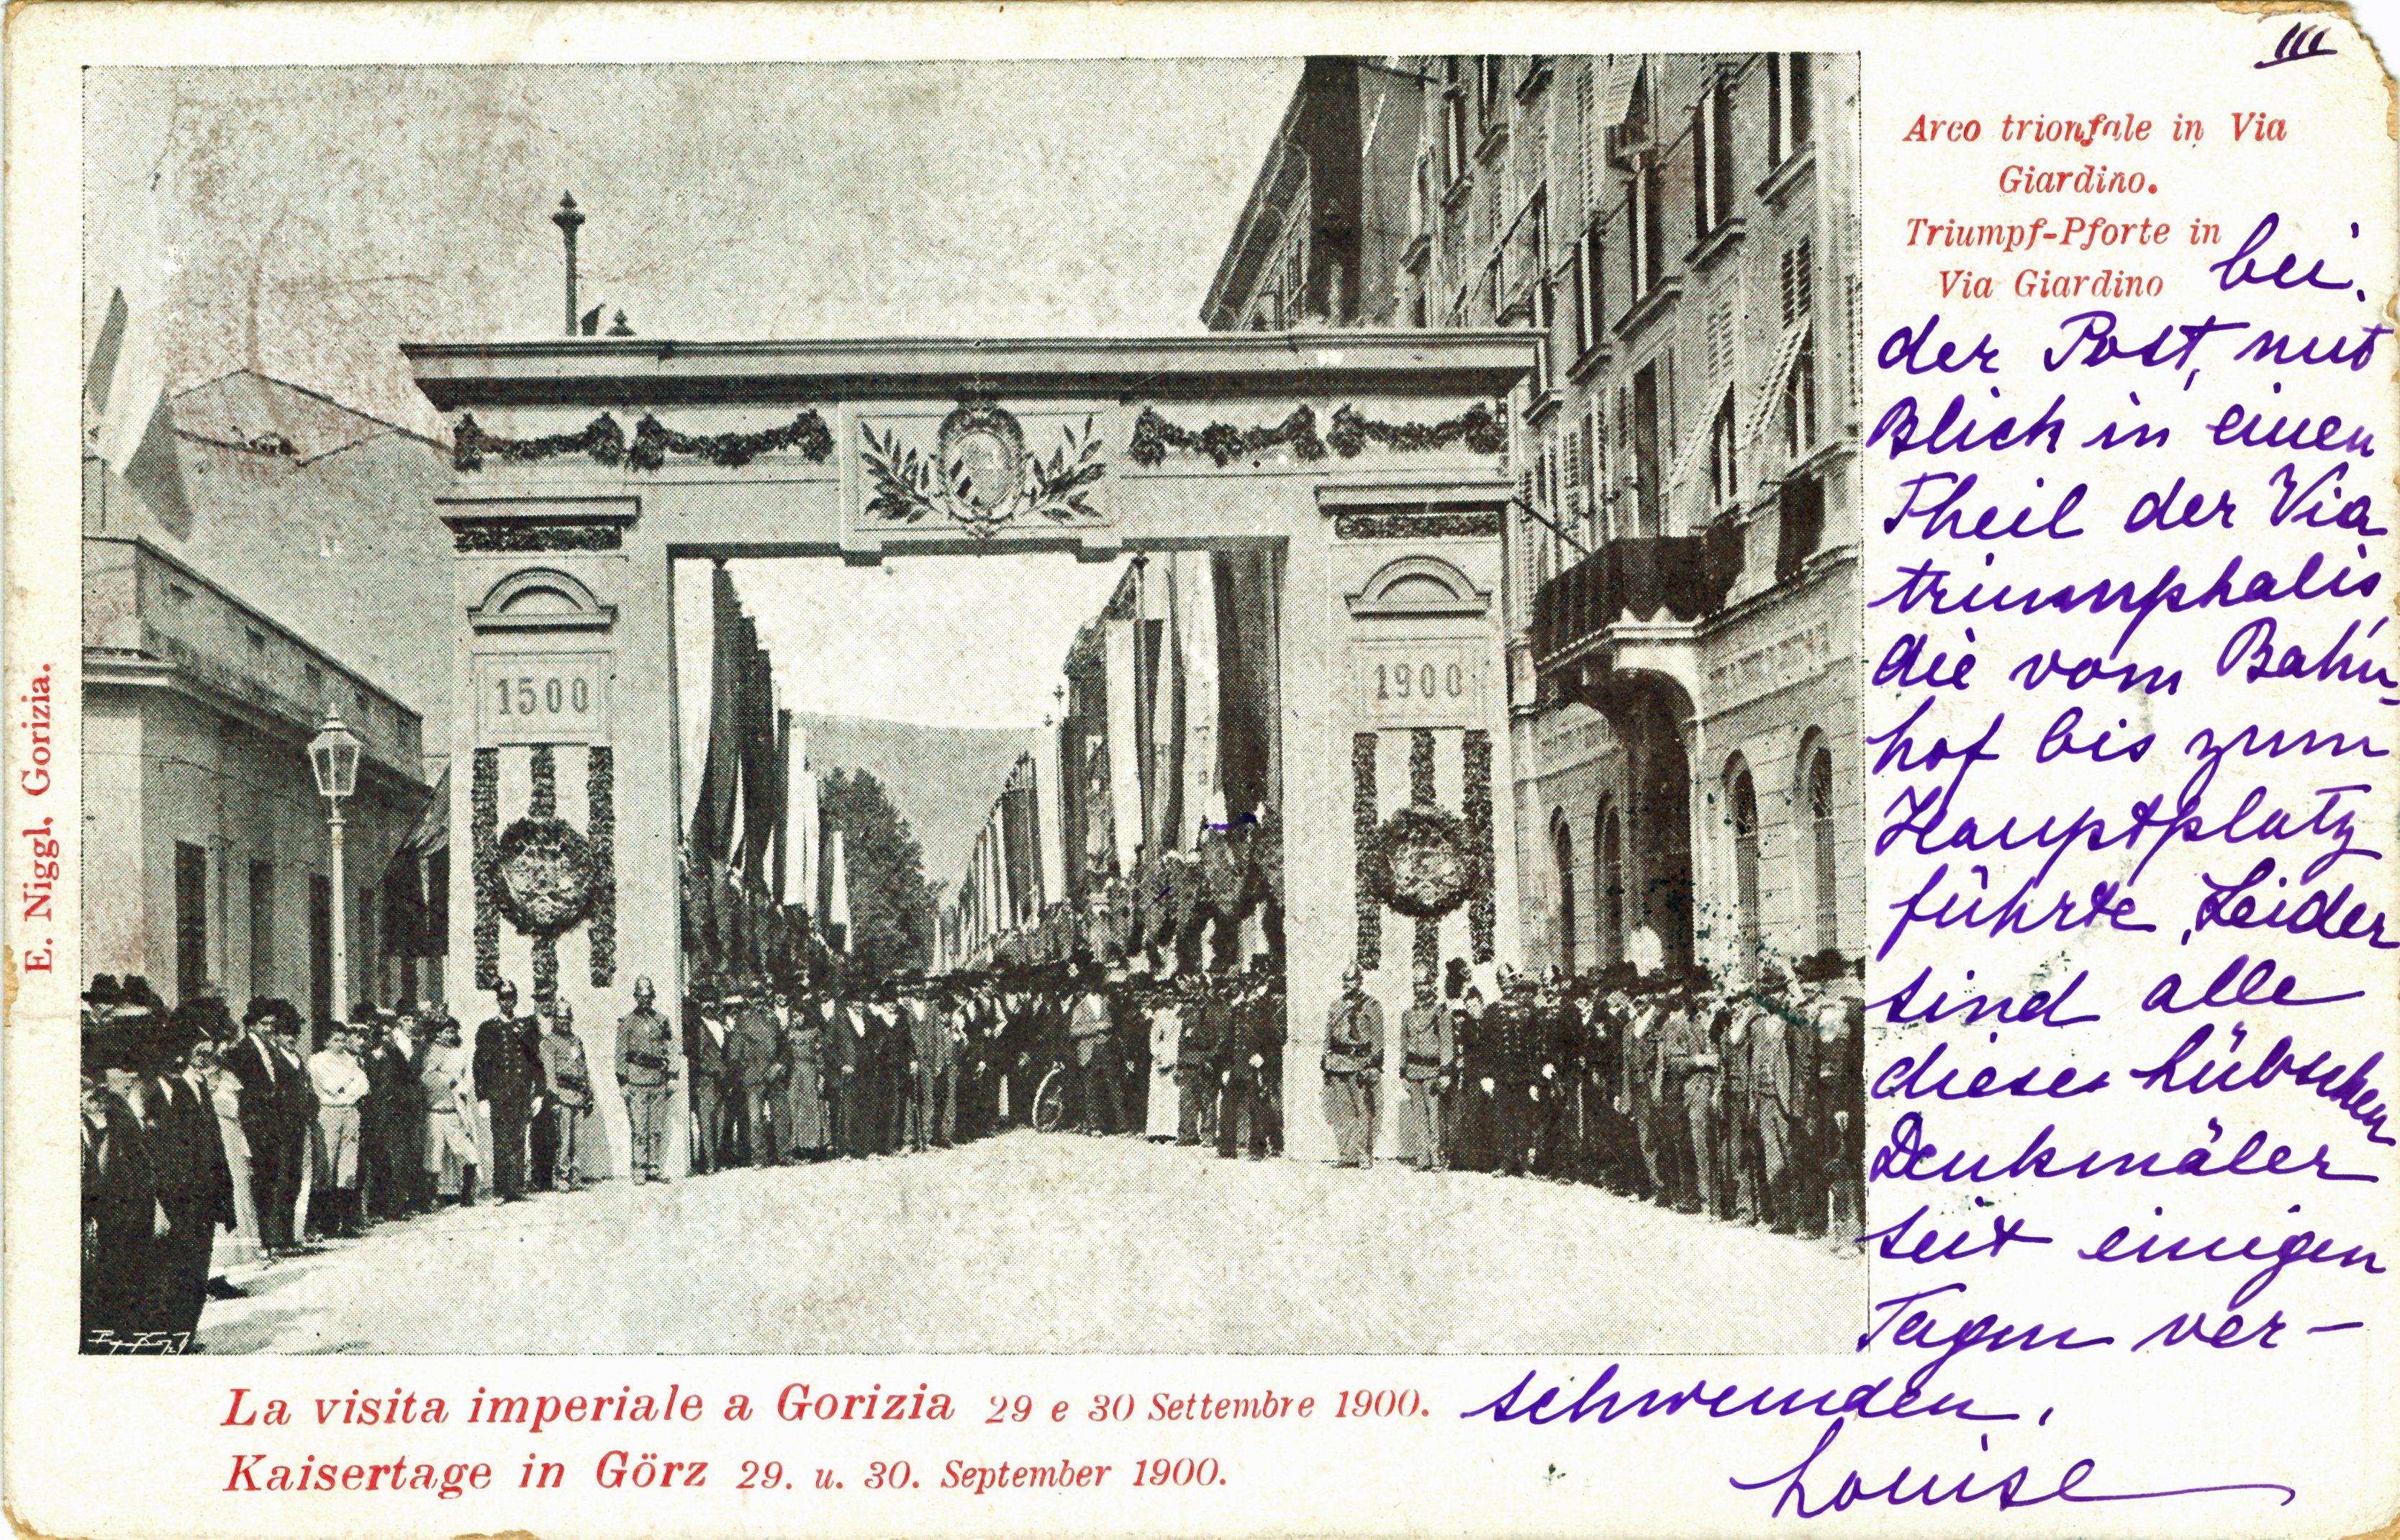 III
Arco trionfale in Via
Giardino.
Triumpf-Pforte in
Via Giardino
bei.
der Post, mit
Blick in einen
Theil der Via
triumphalis,
die vom Bahn-
hof bis zum
Hauptplatz
führte. Leider
sind alle
diese hübschen
Denkmäler
seit einigen
Tagen ver-
schwunden.
Louise
1500
1900
E. Niggl, Gorizia.
La visita imperiale a Gorizia 29 e 30 Settembre 1900.
Kaisertage in Görz 29. u. 30. September 1900.